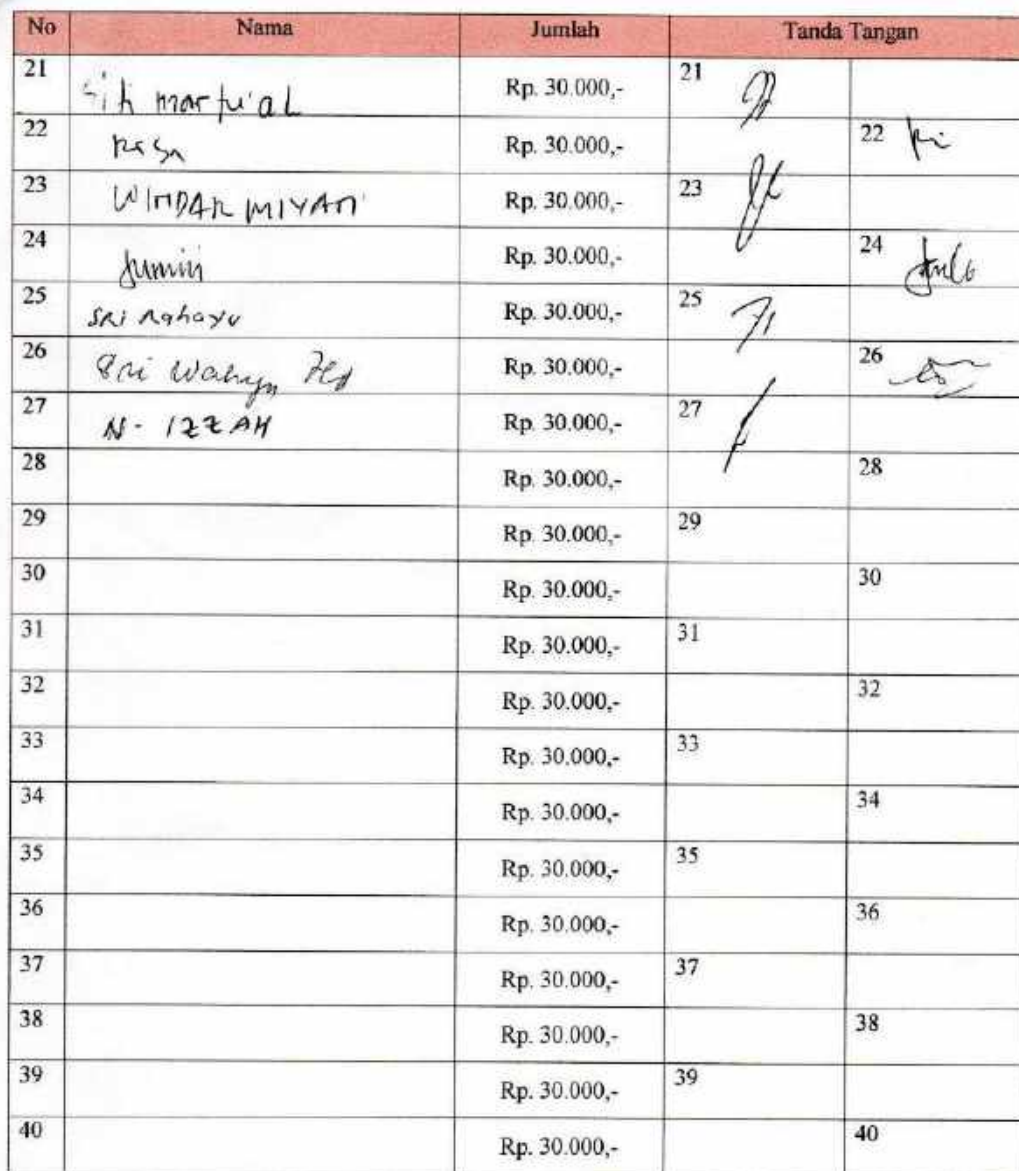 No Nama Jumlah Tanda Tangan
21 Siti martu'ah Rp. 30.000,- 21
22 Rp. 30.000,- 22
23 WINDARMIYATI Rp. 30.000,- 23
24 Jumini Rp. 30.000,- 24
25 SRi Rahayu Rp. 30.000,- 25
26 Sri Wahyu Rp. 30.000,- 26
27 N. IZZAH Rp. 30.000,- 27
28 Rp. 30.000,- 28
29 Rp. 30.000,- 29
30 Rp. 30.000,- 30
31 Rp. 30.000,- 31
32 Rp. 30.000,- 32
33 Rp. 30.000,- 33
34 Rp. 30.000,- 34
35 Rp. 30.000,- 35
36 Rp. 30.000,- 36
37 Rp. 30.000,- 37
38 Rp. 30.000,- 38
39 Rp. 30.000,- 39
40 Rp. 30.000,- 40